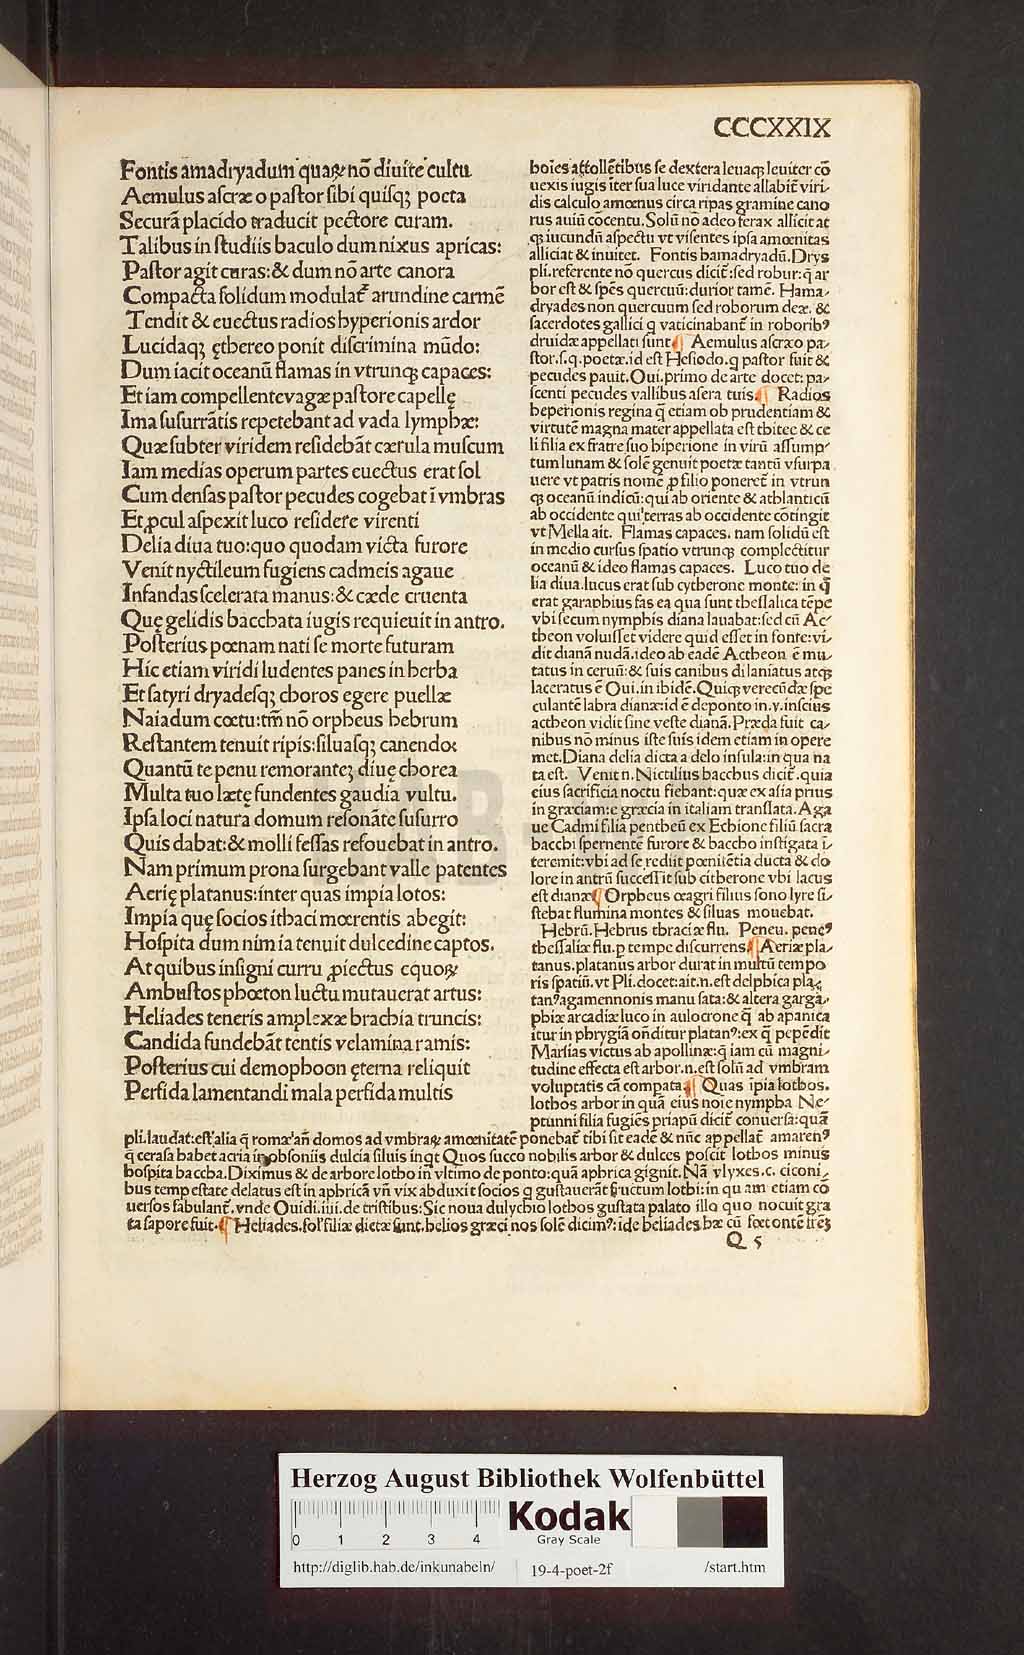 CCCXXIX
Fontis amadryadum quaꝝ nō diuite cultu
Aemulus ascræ o pastor sibi quisqꝫ poeta
Securā placido traducit pectore curam.
Talibus in studiis baculo dum nixus apricas:
Pastor agit curas:& dum nō arte canora
Compacta solidum modulat᷑ arundine carmē
Tendit & euectus radios hyperionis ardor
Lucidaqꝫ ęthereo ponit discrimina mūdo:
Dum iacit oceanū flamas in vtrunqꝫ capaces:
Et iam compellente vagæ pastore capellę
Ima susurrātis repetebant ad vada lymphæ:
Quæ subter viridem residebāt cærula muscum
Iam medias operum partes euectus erat sol
Cum densas pastor pecudes cogebat ī vmbras
Et ꝓcul aspexit luco residere virenti
Delia diua tuo:quo quodam victa furore
Venit nyctileum fugiens cadmeis agaue
Infandas scelerata manus:& cæde cruenta
Quę gelidis bacchata iugis requieuit in antro.
Posterius pœnam nati se morte futuram
Hic etiam viridi ludentes panes in herba
Et satyri dryadesqꝫ choros egere puellæ
Naiadum cœtu:tm̄ nō orpheus hebrum
Restantem tenuit ripis:siluasqꝫ canendo:
Quantū te penu remoranteꝫ diuę chorea
Multa tuo lætę fundentes gaudia vultu.
Ipsa loci natura domum resonāte susurro
Quis dabat:& molli fessas refouebat in antro.
Nam primum prona surgebant valle patentes
Aerię platanus:inter quas impia lotos:
Impia quę socios ithaci mœrentis abegit:
Hospita dum nimia tenuit dulcedine captos.
At quibus insigni curru ꝓiectus equoꝝ
Ambustos phœton luctu mutauerat artus:
Heliades teneris amplexæ brachia truncis:
Candida fundebāt tentis velamina ramis:
Posterius cui demophoon ęterna reliquit
Perfida lamentandi mala perfida multis
boīes attollētibus se dextera leuaqꝫ leuiter cō
uexis iugis iter sua luce viridante allabit᷑ viri-
dis calculo amœnus circa ripas gramine cano
rus auiū cōcentu. Solū nō adeo ferax allicit at
qꝫ iucundū aspectu vt visentes ipsa amœnitas
alliciat & inuitet. Fontis hamadryadū. Drys
pli. referente nō quercus dicit᷑:sed robur:q̄ ar
bor est & spēs quercuū:durior tamē. Hama-
dryades non quercuum sed roborum deæ. &
sacerdotes gallici q vaticinabant᷑ in roboribꝰ
druidæ appellati sunt ¶ Aemulus ascræo pa-
stor.s.q. poetæ.id est Hesiodo.q pastor fuit &
pecudes pauit. Oui.primo de arte docet: pa-
scenti pecudes vallibus ascra tuis. ¶ Radios
heperionis regina q̄ etiam ob prudentiam &
virtutē magna mater appellata est thitec & ce
li filia ex fratre suo hiperione in virū assump-
tum lunam & solē genuit poetæ tantū vsurpa
uere vt patris nomē ꝓ filio poneret᷑ in vtrun
qꝫ oceanū indicū:qui ab oriente & athlanticū
ab occidente qui terras ab occidente cōtingit
vt Mella ait. Flamas capaces. nam solidū est
in medio cursus spatio vtrunqꝫ complectitur
oceanū & ideo flamas capaces. Luco tuo de
lia diua.lucus erat sub cytherone monte: in q̄
erat garaphius fas ea qua sunt thessalica tēpe
vbi secum nymphis diana lauabat:sed cū Ac-
theon voluisset videre quid esset in fonte:vi-
dit dianā nudā.ideo ab eadē Actheon ē mu-
tatus in ceruū:& suis canibus dilaniatus atqꝫ
laceratus ē Oui.in ibidē.Quiqꝫ verecūdæ spe
culantē labra dianæ:id ē deponto in.v.inscius
actheon vidit sine veste dianā. Præda fuit ca-
nibus nō minus iste suis idem etiam in opere
met. Diana delia dicta a delo insula:in qua na
ta est. Venit n. Nictilius bacchus dicit᷑.quia
eius sacrificia noctu fiebant:quæ ex asia prius
in græciam:e græcia in italiam translata. Aga
ue Cadmi filia pentheū ex Echione filiū sacra
bacchi spernentē furore & baccho instigata ī
teremit:vbi ad se rediit pœnitētia ducta & do
lore in antrū successit sub citherone vbi lacus
est dianæ ¶ Orpheus œagri filius sono lyre si-
stebat flumina montes & siluas mouebat.
Hebrū. Hebrus thraciæ flu. Peneu. peneꝰ
thessaliæ flu.p tempe discurrens. ¶ Aeriæ pla-
tanus.platanus arbor durat in multū tempo
ris spatiū.vt Pli.docet:ait.n.est delphica pla-
tanꝰ agamennonis manu sata:& altera garga-
phiæ arcadiæ luco in aulocrone q̄ ab apanica
itur in phrygiā onditur platanꝰ:ex q̄ pepēdit
Marsias victus ab apolline:q̄ iam cū magni-
tudine effecta est arbor.n.est solū ad vmbram
voluptatis cā compata. ¶ Quas īpia lothos.
lothos arbor in quā eius noīe nympha Ne-
ptunni filia fugiēs priapū dicit᷑ conuersa:quā
pli.laudat:est alia q̄ romæ añ domos ad vmbraꝝ amœnitatē ponebat᷑ tibi sit eadē & nūc appellat᷑ amarenꝰ
q̄ cerasa habet acria in obsoniis dulcia siluis inqt Quos succo nobilis arbor & dulces poscit lothos minus
hospita baccha. Diximus & de arbore lotho in vltimo de ponto:quā aphrica gignit. Nā vlyxes.c. ciconi-
bus tempestate delatus est in aphricā vn̄ vix abduxit socios q gustauerāt fructum lothi:in quam etiam cō
uersos fabulant᷑. vnde Ouidi.iiii.de tristibus:Sic noua dulychio lothos gustata palato illo quo nocuit gra
ta sapore fuit. ¶ Heliades.sol' filiæ dictæ sunt.helios græci nos solē dicimꝰ:ide heliades hæ cū
Q 5
Herzog August Bibliothek Wolfenbüttel
0 1 2 3 4
Kodak
Gray Scale
http://diglib.hab.de/inkunabeln/ 19-4-poet-2f /start.htm
HAB